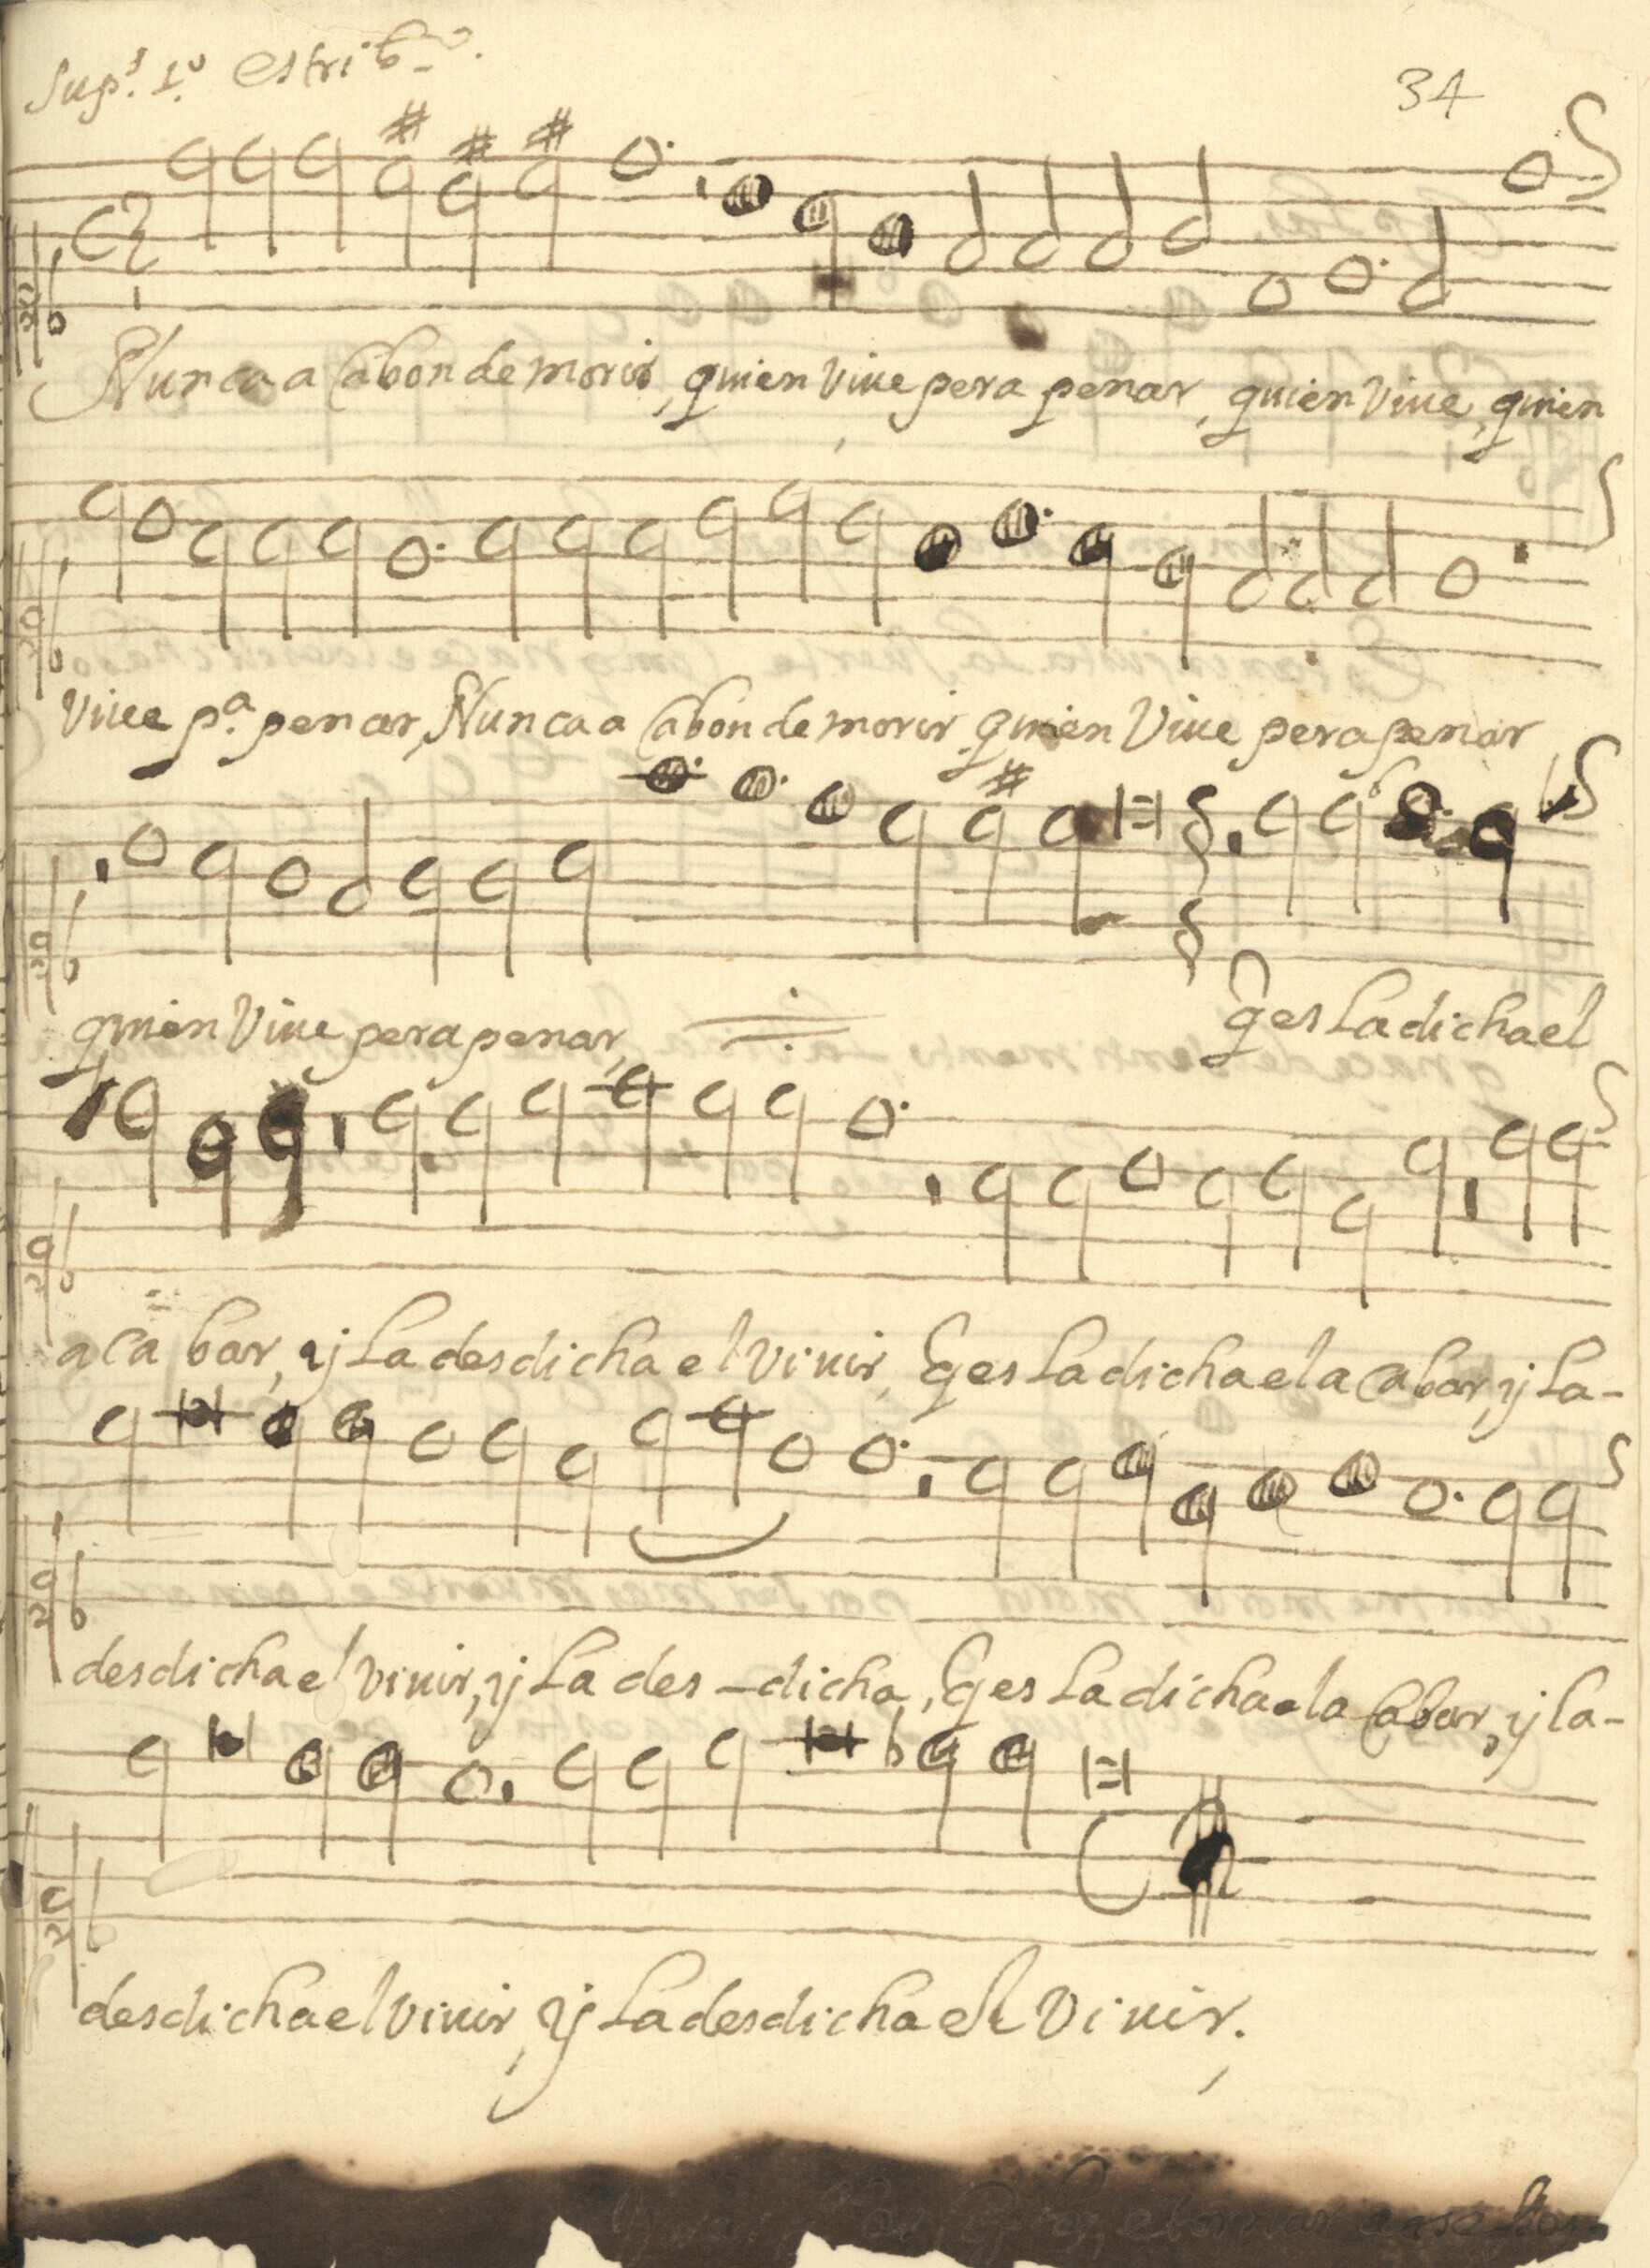 Sup.s 1.o estrib.o
34
Nunca a Cabon de morir, quien Viue pera penar, quien Viue, quien
Viue p.a penar, Nunca a Cabon de morir, quien Viue pera penar
quien Viue pera penar, q es La dicha el
acabar, y La desdicha el viuir, q es La dicha el a Cabar, y La-
desdicha el viuir, y La des-dicha, q es La dicha el a Cabar, y la-
desdicha el viuir, y La desdicha el Viuir.